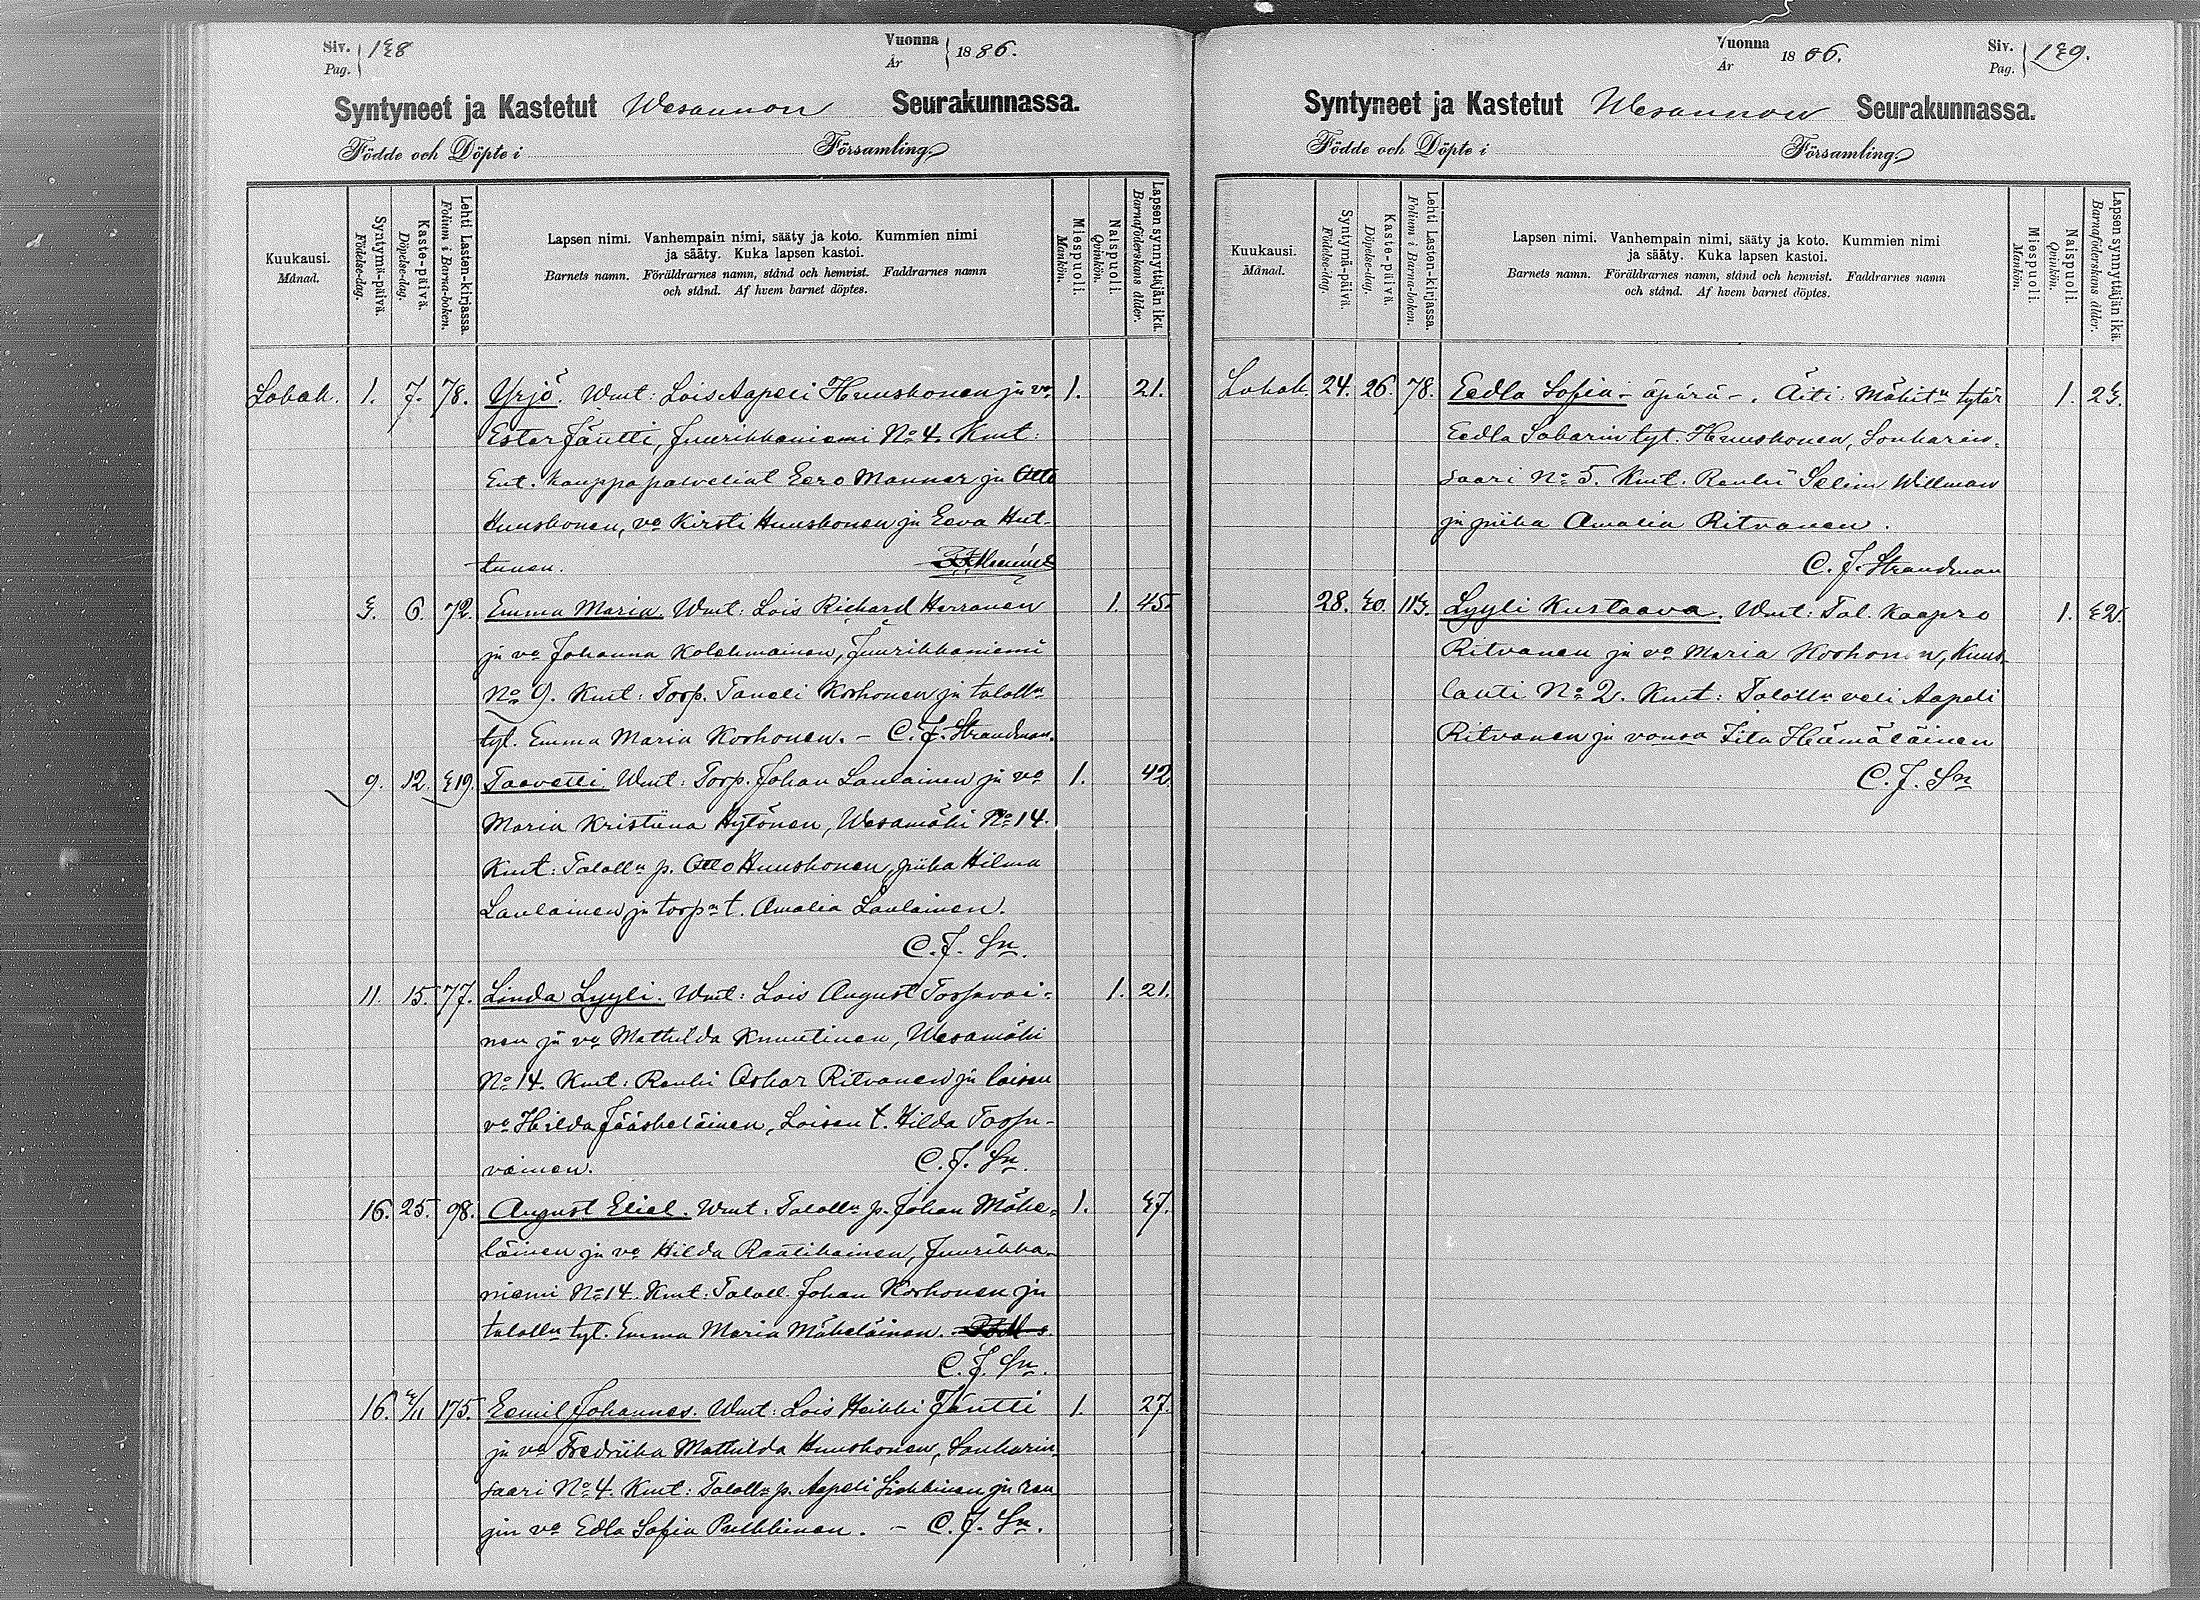 Siv. Pag. 138
Vuonna År 1886.
Syntyneet ja Kastetut Wesannon Seurakunnassa.
Födde och Döpte i Församling.
Kuukausi. Månad.
Syntymä-päivä. Födelse-dag.
Kaste-päivä. Döpelse-dag.
Lehti Lasten-kirjassa. Folium i Barna-boken.
Lapsen nimi. Vanhempain nimi, sääty ja koto. Kummien nimi
ja sääty. Kuka lapsen kastoi.
Barnets namn. Föräldrarnes namn, stånd och hemvist. Faddrarnes namn
och stånd. Af hvem barnet döptes.
Miespuoli. Mankön.
Naispuoli. Qvinkön.
Lapsen synnyttäjän ikä. Barnaföderskans ålder.
Lokak. 1. 7. 78. Yrjö. Wmt: Lois Aapeli Huuskonen ja vo 1. 21.
Ester Jäntti, Juurikkaniemi No 4. Kmt:
Ent. kauppapalveliat Eero Manner ja Otto
Huuskonen, vo Kirsti Huuskonen ja Eeva Hut-
tunen.
3. 6. 72. Emma Maria. Wmt: Lois Richard Herranen 1. 45.
ja vo Johanna Kolehmainen, Juurikkaniemi
No 9. Kmt: Torp. Taneli Korhonen ja talolln
tyt. Emma Maria Korhonen. – C. J. Strandman.
9. 12. 319. Taavetti. Wmt: Torp. Johan Laulainen ja vo 1. 42.
Maria Kristiina Hytönen, Wesamäki No 14.
Kmt: Talolln p. Otto Huuskonen, piika Hilma
Laulainen ja torp n t. Amalia Laulainen.
C. J. Sn.
11. 15. 77. Linda Lyyli. Wmt: Lois August Tossavai- 1. 21.
nen ja vo Mathilda Knuutinen, Wesamäki
No 14. Kmt: Renki Oskar Ritvanen ja loisen
vo Hilda Jääskeläinen, Loisen t. Hilda Tossa-
vainen. C. J. Sn.
16. 25. 98. August Eliel. Wmt: Talolln p. Johan Mäke- 1. 37.
läinen ja vo Hilda Raatikainen, Juurikka-
niemi No 14. Kmt: Taloll. Johan Korhonen ja
talolln tyt. Emma Maria Mäkeläinen.
C. J. Sn.
16. 3/11 175. Eemil Johannes. Wmt: Lois Heikki Jäntti 1. 27.
ja vo Fredriika Mathilda Huuskonen, Sonkarin-
saari No 4. Kmt: Talolln p. Aapeli Sikkinen ja ren
gin vo Edla Sofia Pulkkinen. – C. J. Sn.
Vuonna År 1886.
Siv. Pag. 139.
Syntyneet ja Kastetut Wesannon Seurakunnassa.
Födde och Döpte i Församling.
Kuukausi. Månad.
Syntymä-päivä. Födelse-dag.
Kaste-päivä. Döpelse-dag.
Lehti Lasten-kirjassa. Folium i Barna-boken.
Lapsen nimi. Vanhempain nimi, sääty ja koto. Kummien nimi
ja sääty. Kuka lapsen kastoi.
Barnets namn. Föräldrarnes namn, stånd och hemvist. Faddrarnes namn
och stånd. Af hvem barnet döptes.
Miespuoli. Mankön.
Naispuoli. Qvinkön.
Lapsen synnyttäjän ikä. Barnaföderskans ålder.
Lokak. 24. 26. 78. Eedla Sofia – äpärä –. Äiti: Mäkitn tytär 1. 23.
Eedla Sakarin tyt. Huuskonen, Sonkarin-
saari No 5. Kmt. Renki Selim Willman
ja piika Amalia Ritvanen.
C. J. Strandman
28. 30. 113. Lyyli Kustaava. Wmt: Tal. Kaapro 1. 32.
Ritvanen ja vo Maria Korhonen, Kuus-
lanti No 2. Kmt: Talolln veli Aapeli
Ritvanen ja vaimo Fita Hämäläinen
C. J. Sn